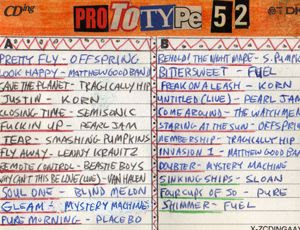 CDing
PROTOTYPE 52
A
B
PRETTY FLY - OFFSPRING
LOOK HAPPY - MATTHEW GOOD BAND
SAVE THE PLANET - TRAGICALLY HIP
JUSTIN - KORN
CLOSING TIME - SEMISONIC
FUCKIN UP - PEARL JAM
TEAR - SMASHING PUMPKINS
FLY AWAY - LENNY KRAVITZ
REMOTE CONTROL - BEASTIE BOYS
WHY CAN'T THIS BE LOVE (LIVE) - VAN HALEN
SOUL ONE - BLIND MELON
GLEAM - MYSTERY MACHINE
PURE MORNING - PLACEBO
BEHOLD! THE NIGHT MARE - S. PUMPK
BITTERSWEET - FUEL
FREAK ON A LEASH - KORN
UNTITLED (LIVE) - PEARL JAM
COME AROUND - THE WATCHMEN
STARING AT THE SUN - OFFSPRI
MEMBERSHIP - TRAGICALLY HIP
INVASION 1 - MATTHEW GOOD BAN
DOUBTER - MYSTERY MACHINE
SINKING SHIPS - SLOAN
FOUR CUPS OF 50 - PURE
SHIMMER - FUEL
X-ZCDINGAA